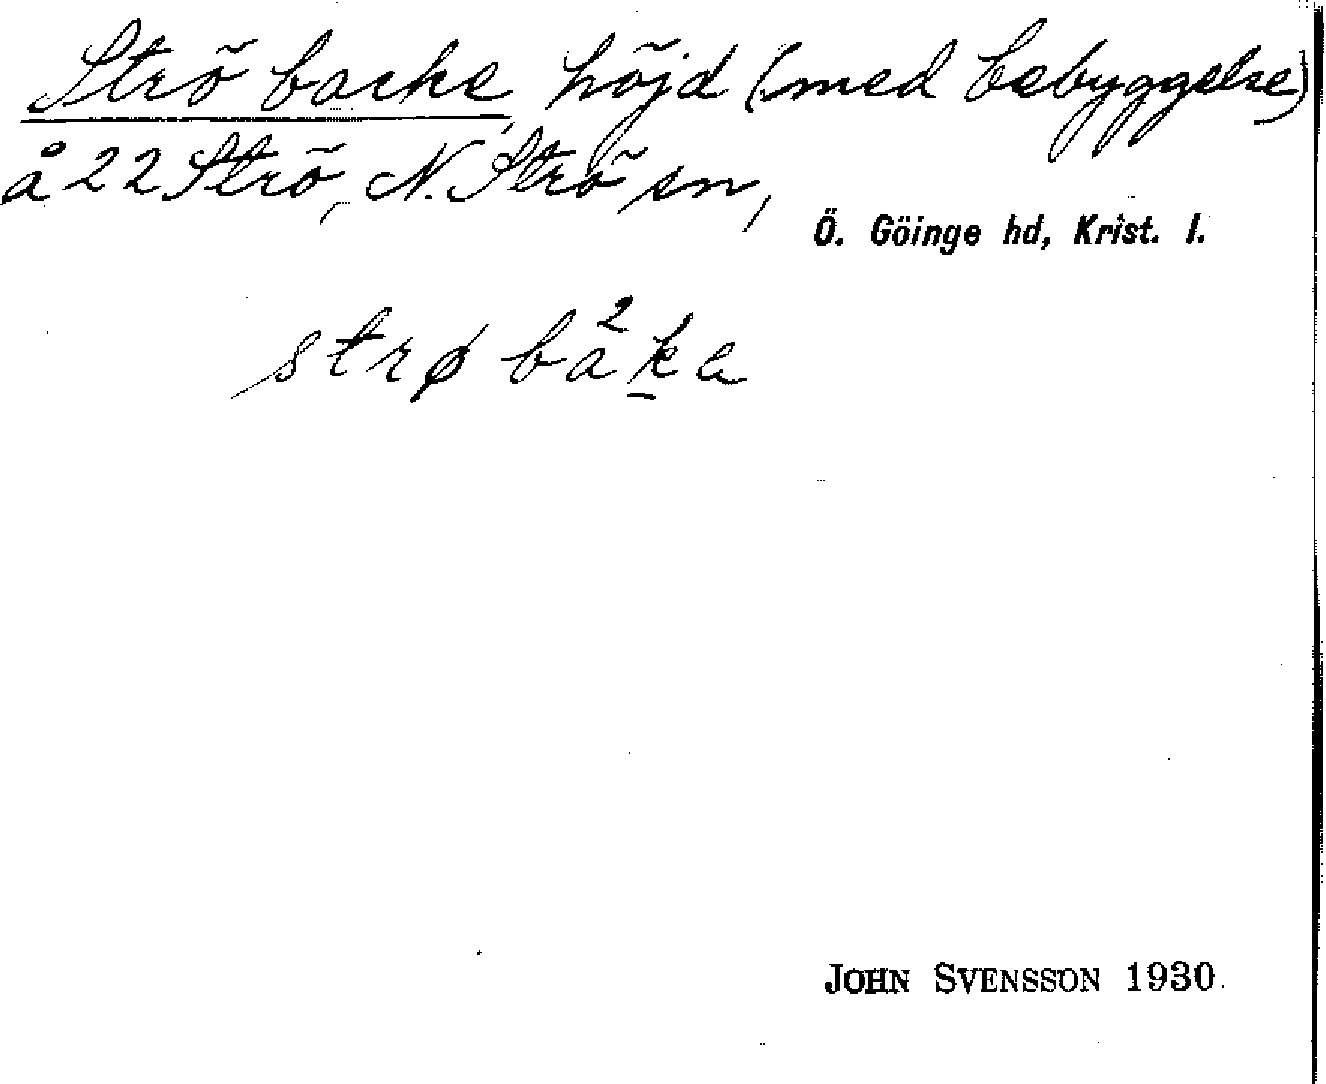 Strö backe, höjd (med bebyggelse)
å 22 Strö, N. Strö sn,
Ö. Göinge hd, Krist. l.
strø ba²ka
JOHN SVENSSON 1930.